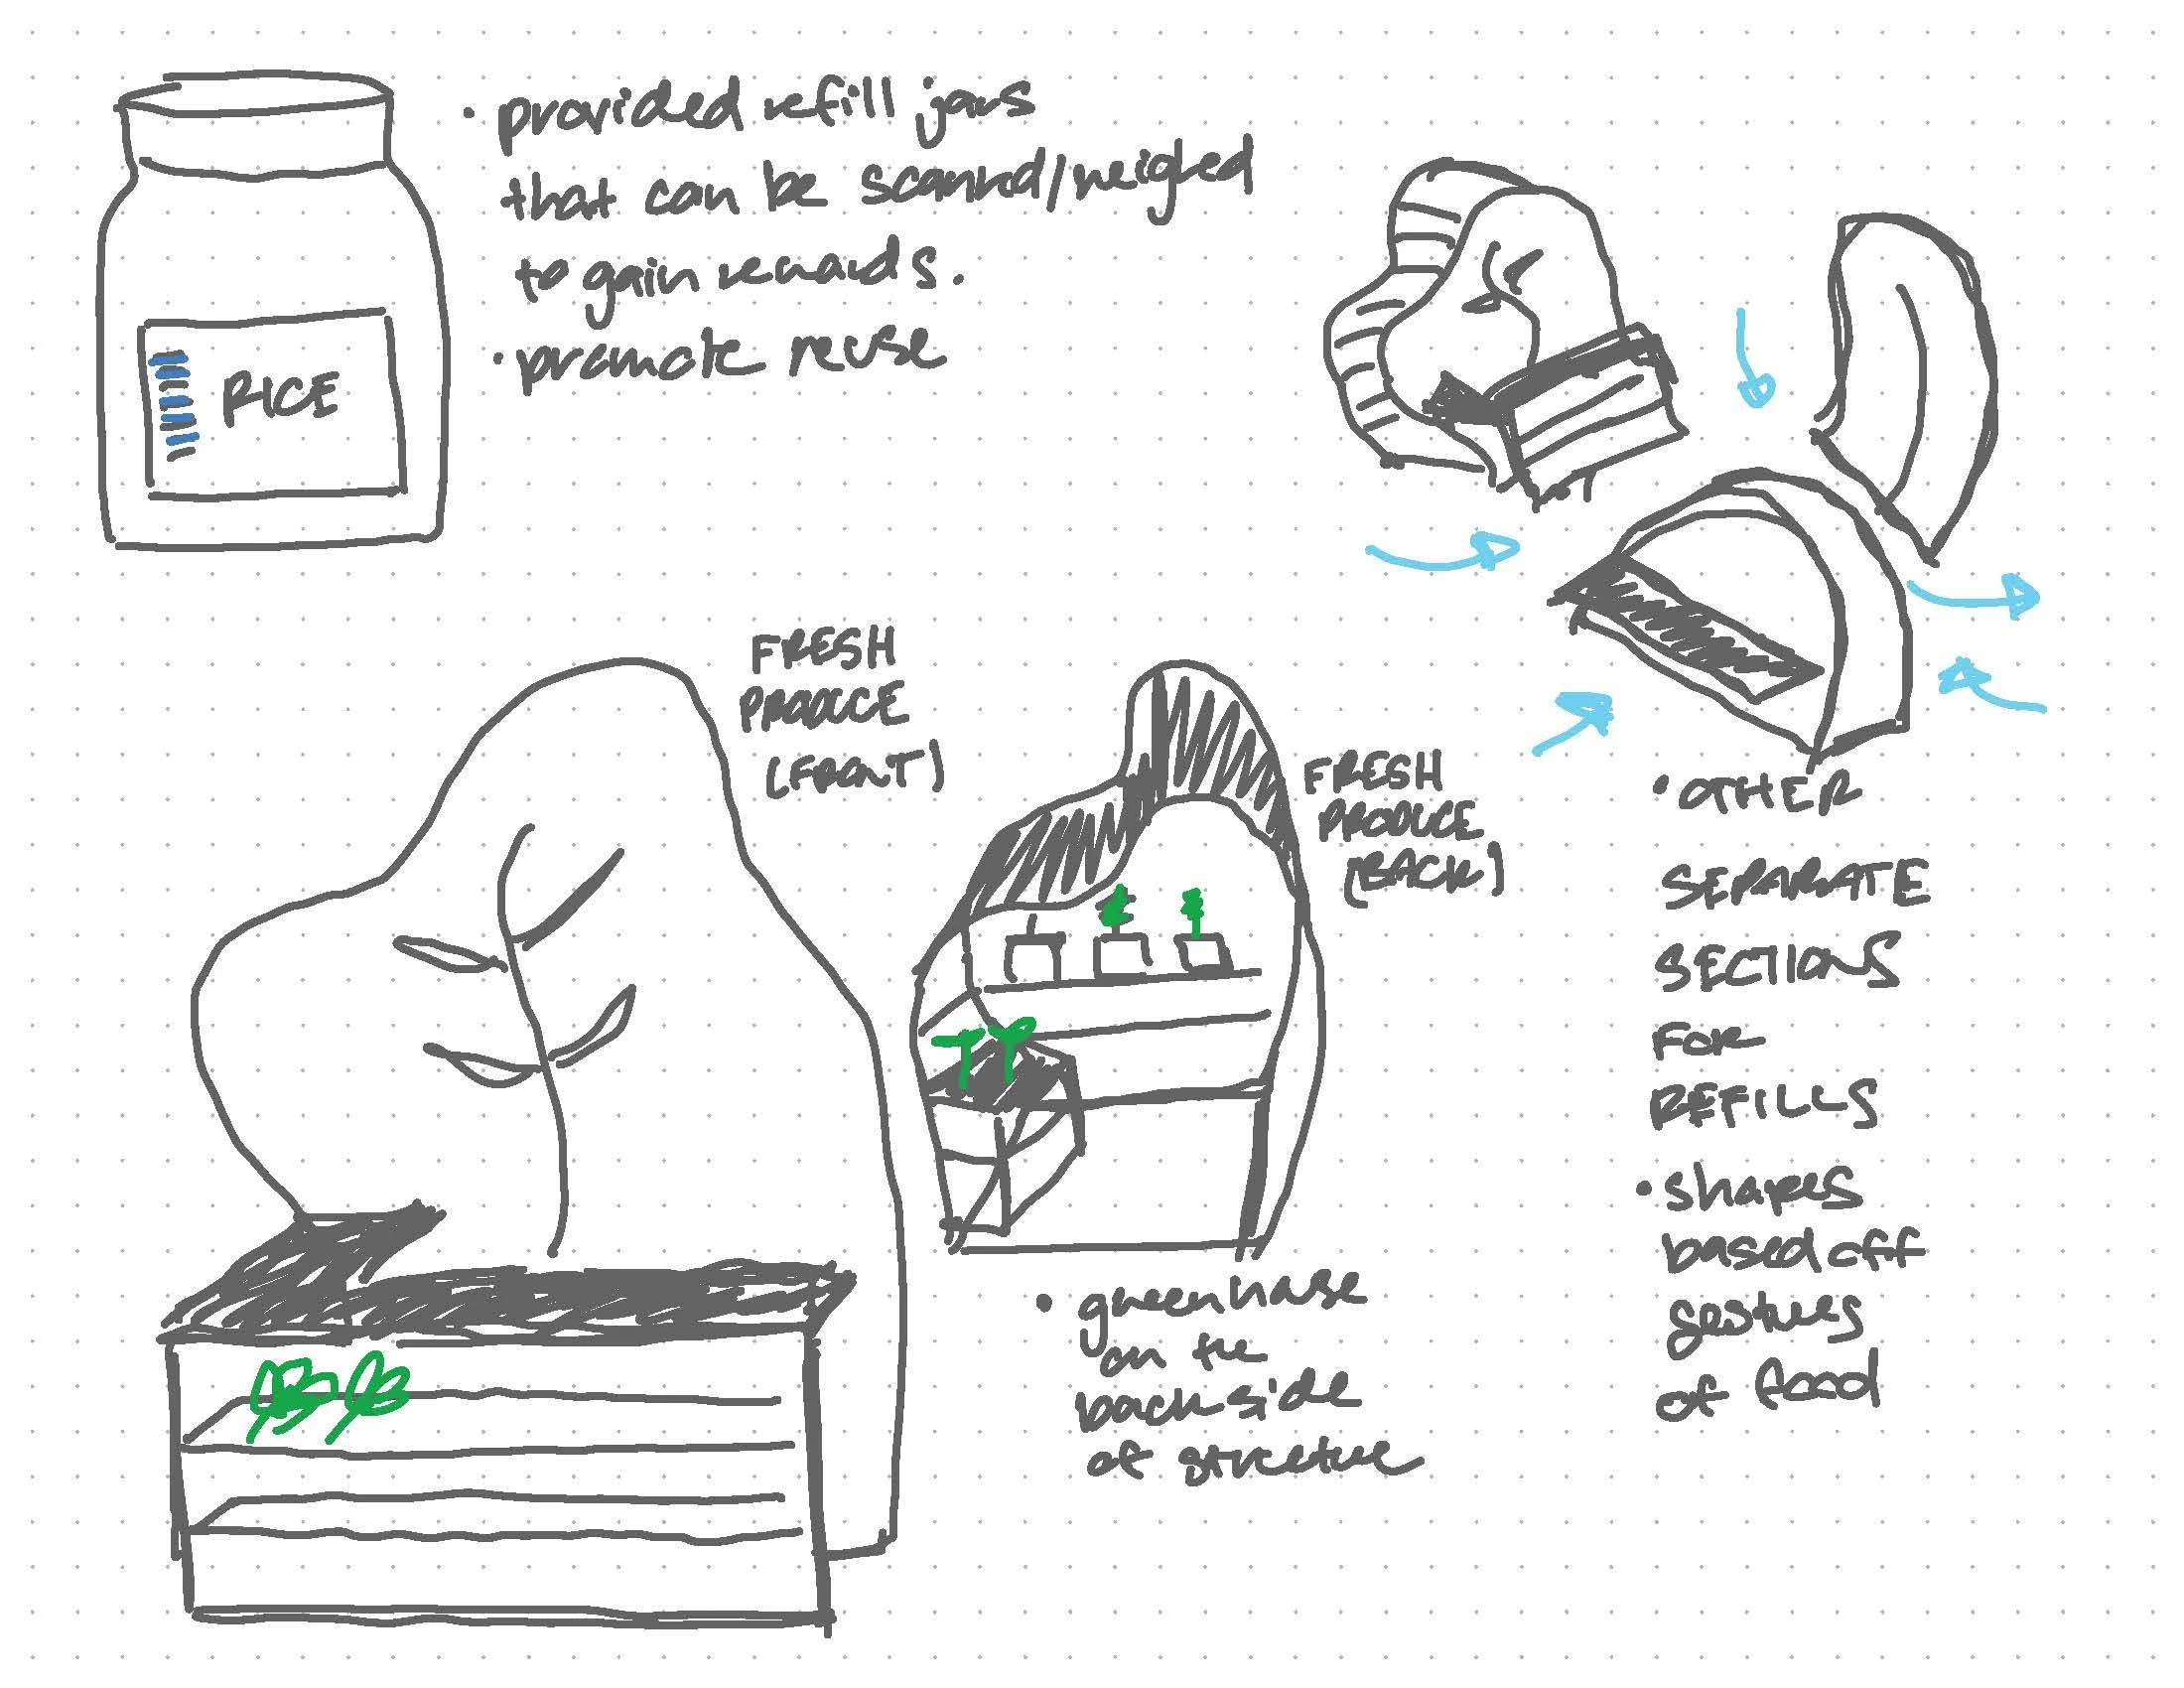 • provided refill jars
that can be scanned/weighed
to gain rewards.
• promote reuse
RICE
FRESH
PRODUCE
(FRONT)
FRESH
PRODUCE
(BACK)
• greenhouse
on the
backside
of structure
• OTHER
SEPARATE
SECTIONS
FOR
REFILLS
• shapes
based off
gestures
of food